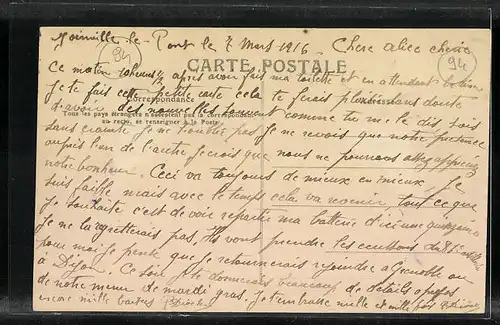 Joinville-le-Pont le 7 Mars 1916 Chere alice cherie
94 94
CARTE POSTALE
Ce matin après avoir fait ma toilette et en attendant
je te fais cette petite carte cela te ferais plaisir sans doute
Correspondance
d'avoir des nouvelles souvent comme tu me le dis
Tous les pays étrangers n'acceptent pas la correspondance
au recto, se renseigner à la Poste.
sans crainte je ne pas Je ne savais que notre
auprès l'un de l'autre je crois que nous ne pourrons
notre bonheur. Ceci va toujours de mieux en mieux je
suis faible mais avec le temps cela va revenir tout ce que
je souhaite c'est de voir repartir ma batterie d'ici une quinzaine
je ne la regretterais pas. Ils vont prendre les
pour moi je pense que je retournerais rejoindre à Grenoble ou
à Dijon. Ce soir je te donnerais beaucoup de détails
de notre menu de mardi gras. Je t'embrasse mille et mille fois
encore mille baisers